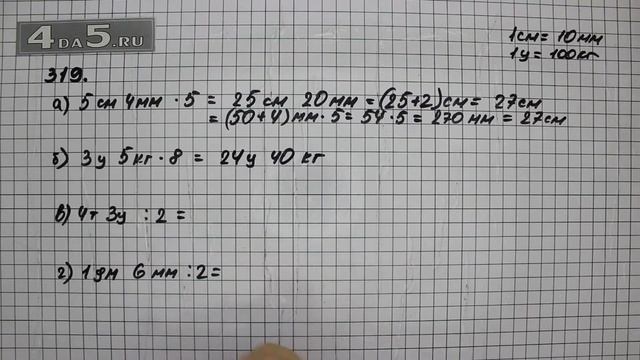 4DA5.RU
1см = 10мм
1ц = 100кг
319.
а) 5см 4мм · 5 = 25см 20мм = (25+2)см = 27см
= (50+4)мм · 5 = 54 · 5 = 270мм = 27см
б) 3ц 5кг · 8 = 24ц 40кг
в) 4т 3ц : 2 =
г) 1дм 6мм : 2 =